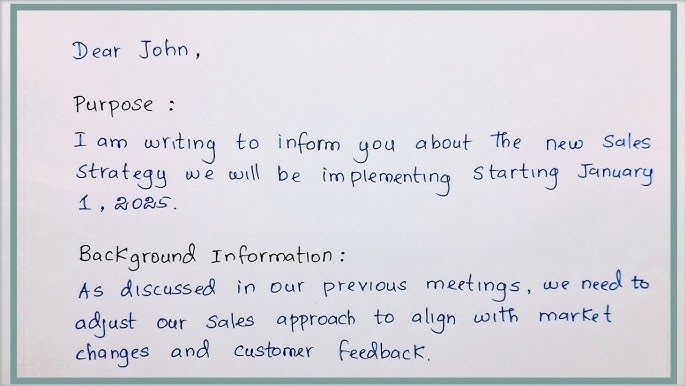 Dear John,
Purpose :
I am writing to inform you about the new sales
strategy we will be implementing starting January
1, 2025.
Background Information :
As discussed in our previous meetings, we need to
adjust our sales approach to align with market
changes and customer feedback.